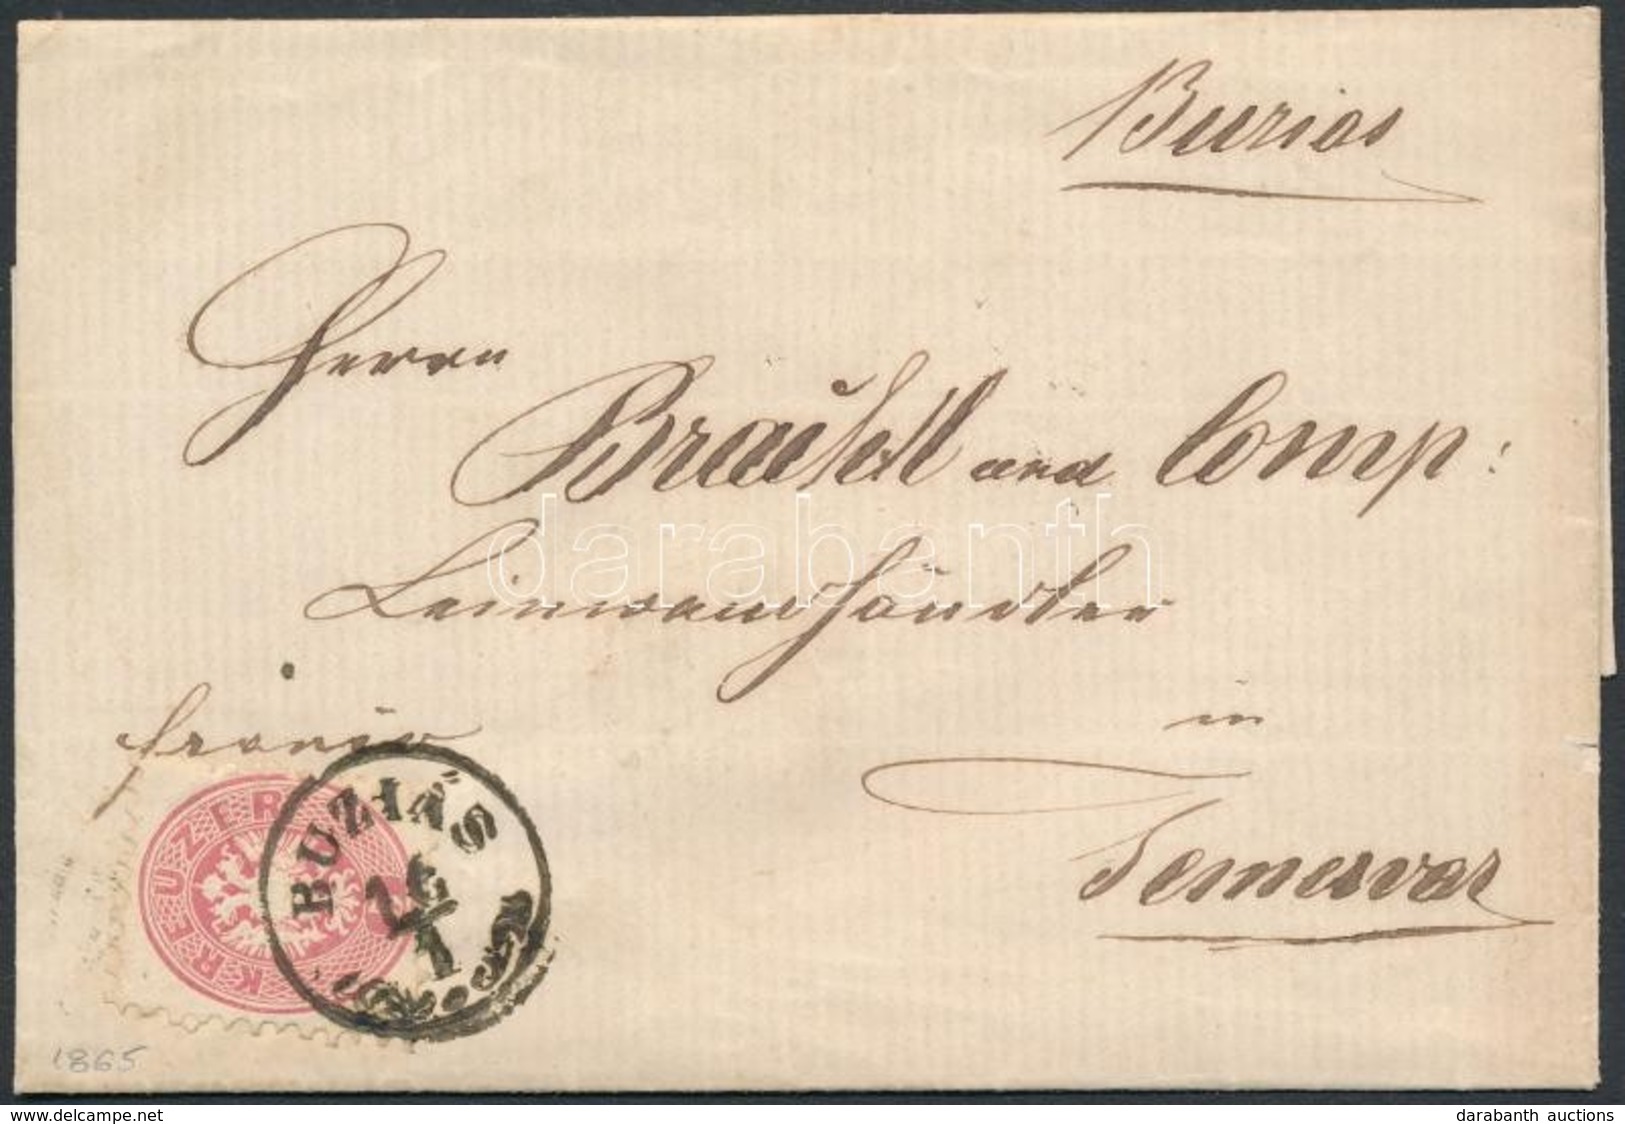 Buzias
Herrn
and Comp:
Leinwandhändler
in
franco
Temesvar
KREUZER
BUZIÁS
16
1
1865
darabanth
www.delcampe.net
darabanth auctions